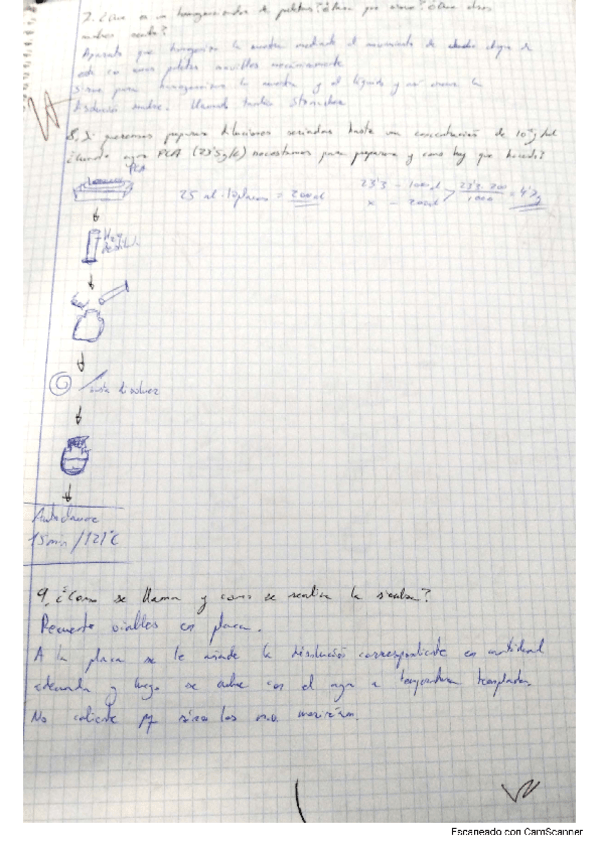 7. ¿Que es un homogeneizador de paletas? ¿ por ? ¿Que otros
nombres ?
Aparato que homogeniza la muestra mediante el movimiento de
este con unas paletas movibles mecánicamente
Sirve para homogeneizar la muestra y el líquido y así crear la
disolución madre. Llamado también Stomacher
8. Si queremos preparar diluciones seriadas hasta una concentración de
¿Cuánto agar PCA (23'5g/L) necesitamos para preparar y como hay que hacerlo?
PCA
25 ml · = 200ml
23'5 - 1000ml
x - 200ml
23'5 · 200
1000
= 4'7g
H2O
destilada
disolver
Autoclave
15min/121ºC
9. ¿Como se llama y como se realiza la siembra?
Recuento viables en placa.
A la placa se le añade la disolución correspondiente en cantidad
adecuada y luego se cubre con el agar a temperatura templada.
No caliente pq sino los m.o. morirían.
Escaneado con CamScanner